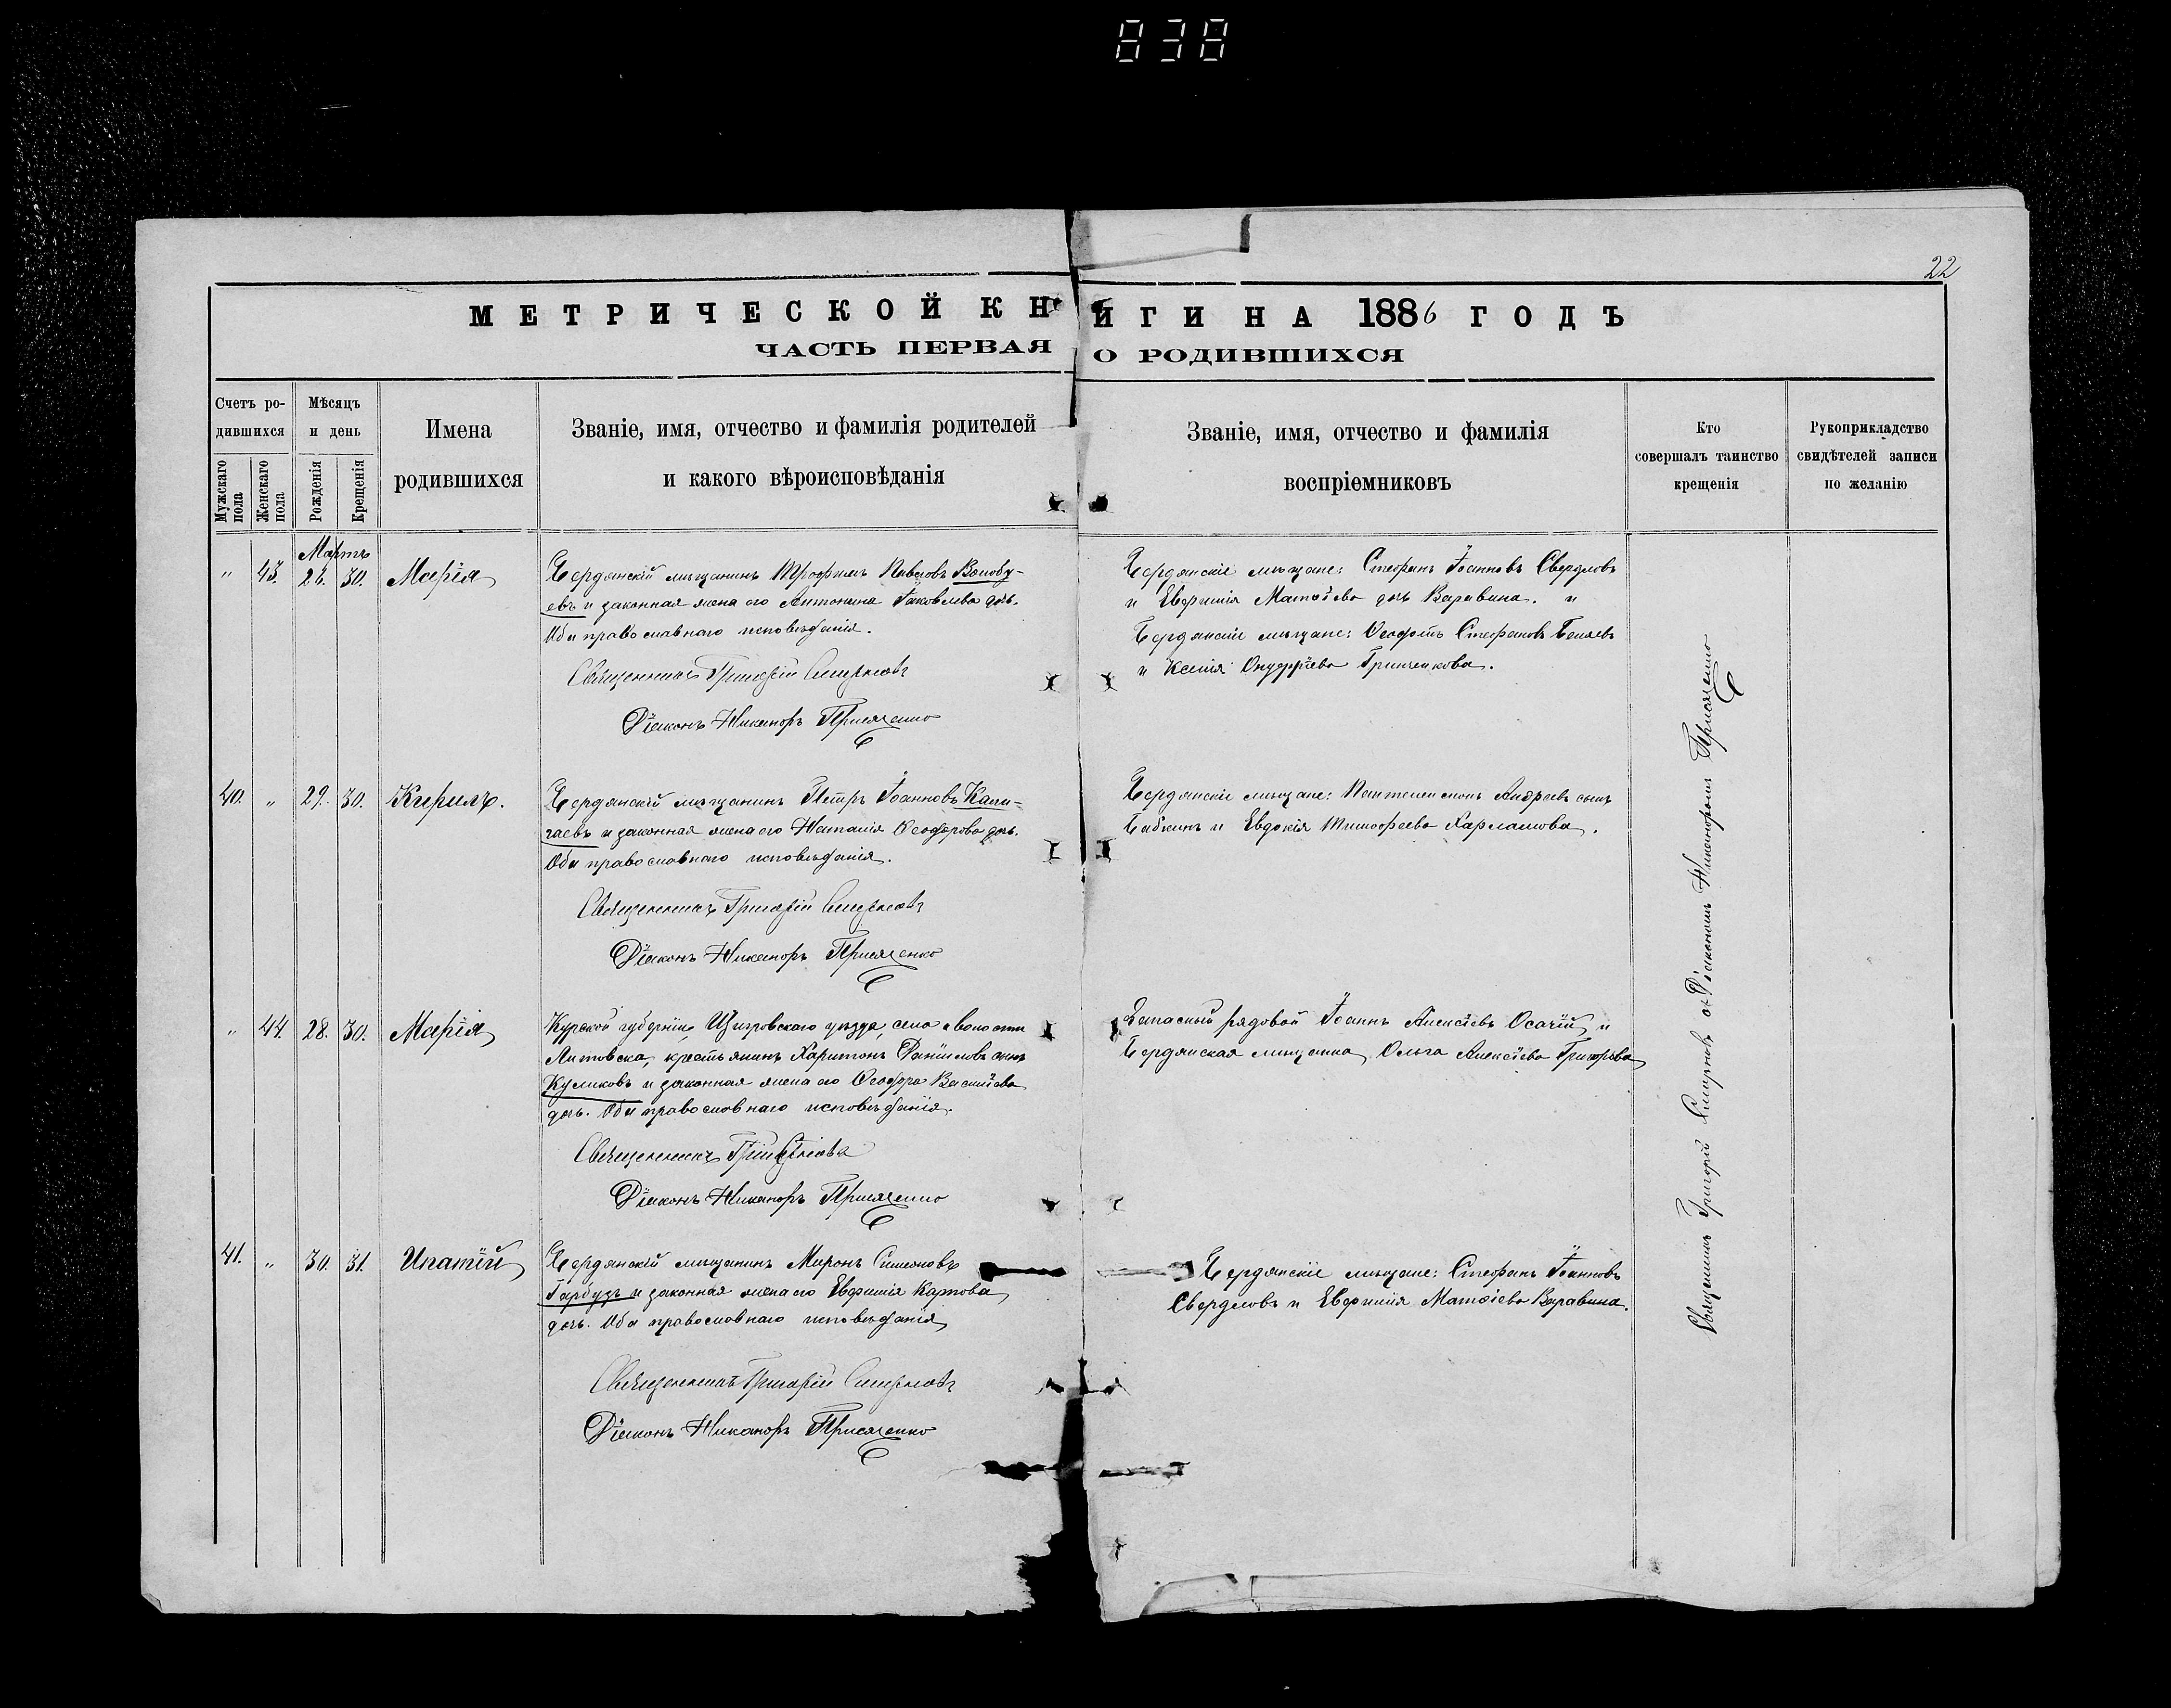 838
22
МЕТРИЧЕСКОЙ КНИГИ НА 1886 ГОДЪ
ЧАСТЬ ПЕРВАЯ О РОДИВШИХСЯ
Счетъ ро-
дившихся
Мужскаго
пола
Женскаго
пола
Мѣсяцъ
и день
Рожденія
Крещенія
Имена
родившихся
Званіе, имя, отчество и фамилія родителей
и какого вѣроисповѣданія
Званіе, имя, отчество и фамилія
воспріемниковъ
Кто
совершалъ таинство
крещенія
Рукоприкладство
свидѣтелей записи
по желанію
Мартъ
" 43. 26. 30. Марія
Бердянскій мѣщанинъ Трофимъ Павловъ
евъ и законная жена его Антонина Іаковлева дочь.
Оба православнаго исповѣданія.
Священникъ Григорій Смирновъ
Діаконъ Никаноръ Присяженко
Бердянскіе мѣщане: Стефанъ Іоанновъ Свердловъ
и Евфимія Матѳіева дочь Варавина. и
Бердянскіе мѣщане: Стефановъ Беляевъ
и Ксенія Онуфріева Гринченкова.
40. " 29. 30. Кирилъ.
Бердянскій мѣщанинъ Петръ Іоанновъ Калу-
гаевъ и законная жена его Наталія Ѳеодорова дочь.
Оба православнаго исповѣданія.
Священникъ Григорій Смирновъ
Діаконъ Никаноръ Присяженко
Бердянскіе мѣщане: Пантелеимонъ Андреевъ сынъ
Бабкинъ и Евдокія Тимофеева Харламова.
" 44. 28. 30. Марія
Курской губерніи, Щигровскаго уѣзда, села и волости
крестьянинъ Харитонъ Даніиловъ сынъ
Куликовъ и законная жена его Ѳеодора Василіева
дочь. Оба православнаго исповѣданія.
Священникъ Григ Смирновъ
Діаконъ Никаноръ Присяженко
Запасный рядовой Іоаннъ Алексіевъ Осачій и
Бердянская мѣщанка Ольга Алексіева Григорьева
41. " 30. 31. Ипатій
Бердянскій мѣщанинъ Миронъ Симеоновъ
Гарбузъ и законная жена его Евфимія Карпова
дочь. Оба православнаго исповѣданія
Священникъ Григорій Смирновъ
Діаконъ Никаноръ Присяженко
Бердянскіе мѣщане: Стефанъ Іоанновъ
Свердловъ и Евфимія Матѳіева Варавина.
Священникъ Григорій Смирновъ съ Діакономъ Никаноромъ Присяженко